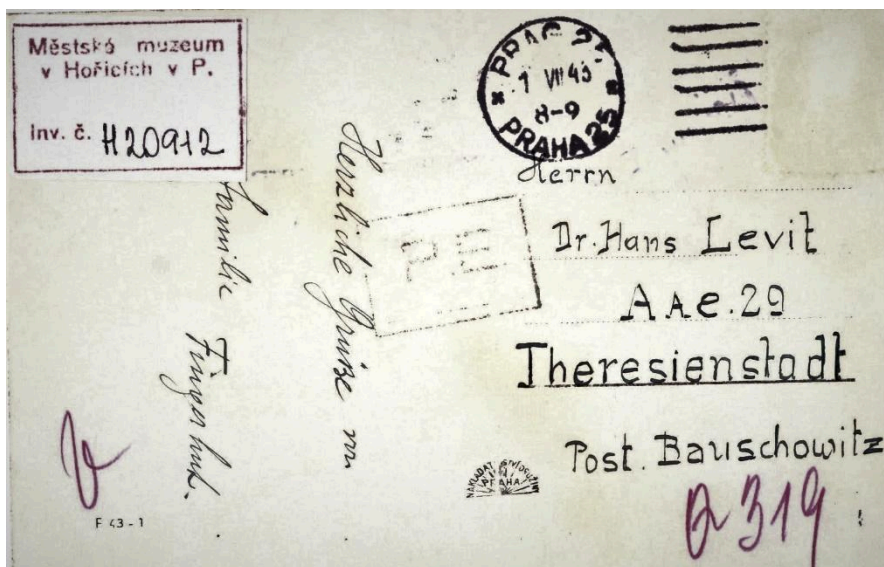 Městské muzeum
v Hořicích v P.
inv. č. H20912
PRAG 25
1 VII 43
8-9
PRAHA 25
Herrn
Dr. Hans Levit
AAe. 29
Theresienstadt
Post. Bauschowitz
Herzliche Grüße von
Familie
Fingerhut.
PRAHA
F 43-1
319